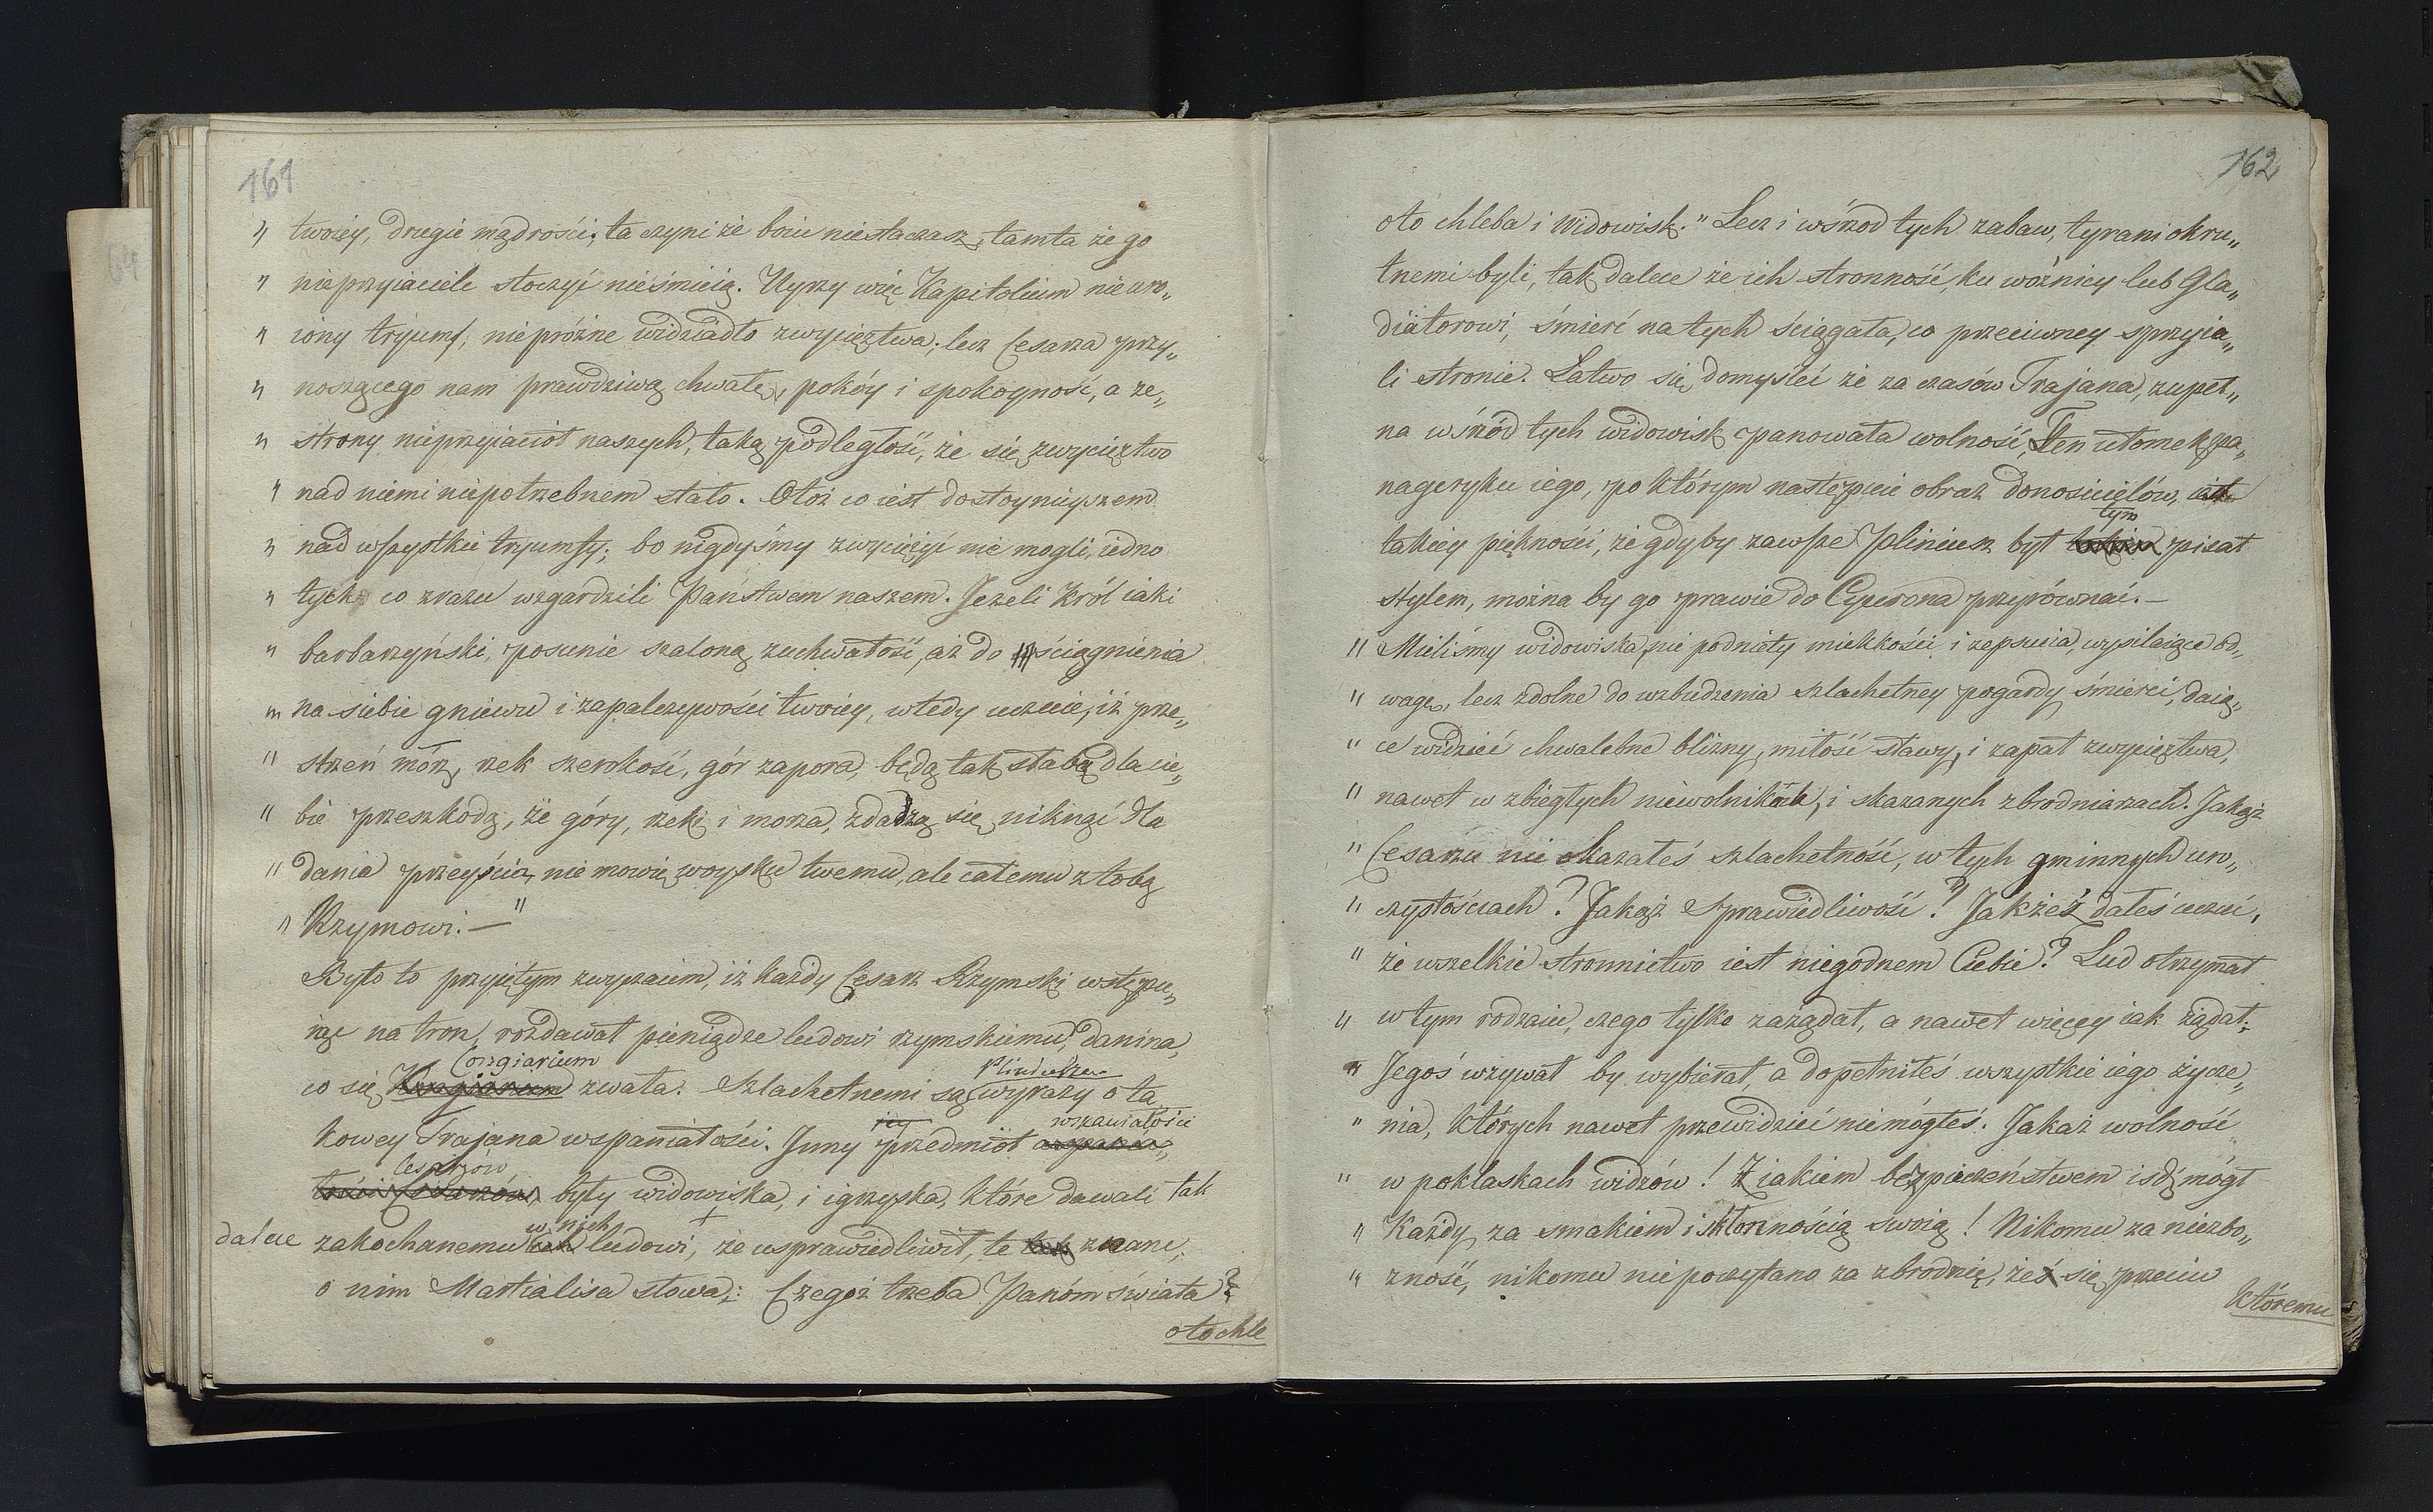 161
„ twoiéy, drugie mądrości; ta czyni że boiu niestaczasz, tamta że go
„ nieprzyiaciele stoczyć nieśmieią. Uyrzy więc Kapitolium nie uro„
„ iony tryumf, niepróżne widziadło zwycięztwa; lecz Cesarza przy„
„ noszącego nam prawdziwą chwałę, pokóy i spokoyność, a ze„
„ strony nieprzyiaciół naszych, taką podległość, że się zwycięztwo
„ nad niemi niepotrzebnem stało. Otóż co iest dostoynieyszem
„ nad wszystkie tryumfy; bo nigdyśmy zwyciężyć nie mogli, iedno
„ tych co zrazu wzgardzili Państwem naszem. Jeżeli Król iaki
„ barbarzyński, posunie szaloną zuchwałość, aż do ściągnienia
„ na siebie gniewu i zapalczywości twoiey, wtedy uczuie, iż prze„
„ strzeń mórz, rzek szerokość, gór zapora, będą tak słabą dla cie„
„ bie przeszkodą, że góry, rzeki i morza, zdadzą się niknąć dla
„ dania przeyścia, nie mowię woysku twemu, ale całemu z tobą
„ Rzymowi. — "
Było to przyiętym zwyczaiem, iż każdy Cesarz Rzymski wstępu„
iąc na tron, rozdawał pieniądze ludowi rzymskiemu, danina,
Congiarium Pliniusza
co się zwała. Szlachetnemi są wyrazy o ta
iey wspaniałości
kowey Trajana wspaniałości. Inny przedmiot
Cesarzów
były widowiska, i igrzyska, które dawali tak
w nich
dalece zakochanemu ludowi, że usprawiedliwił, te znane,
o nim Martialisa słowa,: Czegóż trzeba Panóm świata?
oto chle
162
oto chleba i widowisk." Lecz i wśrzod tych zabaw, tyrani okru„
tnemi byli, tak dalece że ich stronność, ku woźnicy lub Gla„
diatorowi, śmierć na tych ściągała, co przeciwney sprzyia„
li stronie. Łatwo się domyśleć że za czasów Trajana, zupeł„
na wśrzód tych widowisk panowała wolność, Ten ułomek pa„
nageryku iego, po którym następuie obraz donosicielów, iest
tym
takiey piękności, że gdyby zawsze Pliniusz był pisał
stylem, można by go prawie do Cycerona przyrównać. —
„ Mieliśmy widowiska, nie podniety miękkości i zepsucia, wysilaiące od„
„ wagę, lecz zdolne do wzbudzenia szlachetney pogardy śmierci, daią„
„ ce widzieć chwalebne blizny, miłość sławy, i zapał zwycięztwa,
„ nawet w zbiegłych niewolnikach, i skazanych zbrodniarzach. Jakąż
„ Cesarzu nie okazałeś szlachetność, w tych gminnych uro„
„ czystościach? Jakąż Sprawiedliwość? Jakżeś dałeś uczuć,
„ że wszelkie stronnictwo iest niegodnem Ciebie? Lud otrzymał
„ w tym rodzaiu, czego tylko zażądał, a nawet więcey iak żądał;
„ Jegoś wzywał by wybierał, a dopełniłeś wszystkie iego życze„
„ nia, których nawet przewidzieć niemógłeś. Jakaż wolność
„ w poklaskach widzów! Z iakiem bezpieczeństwem iśdź mógł
„ Każdy za smakiem i skłonnością swoią! Nikomu za niezbo„
„ żność, nikomu niepoczytano za zbrodnię, że się przeciw
któremu